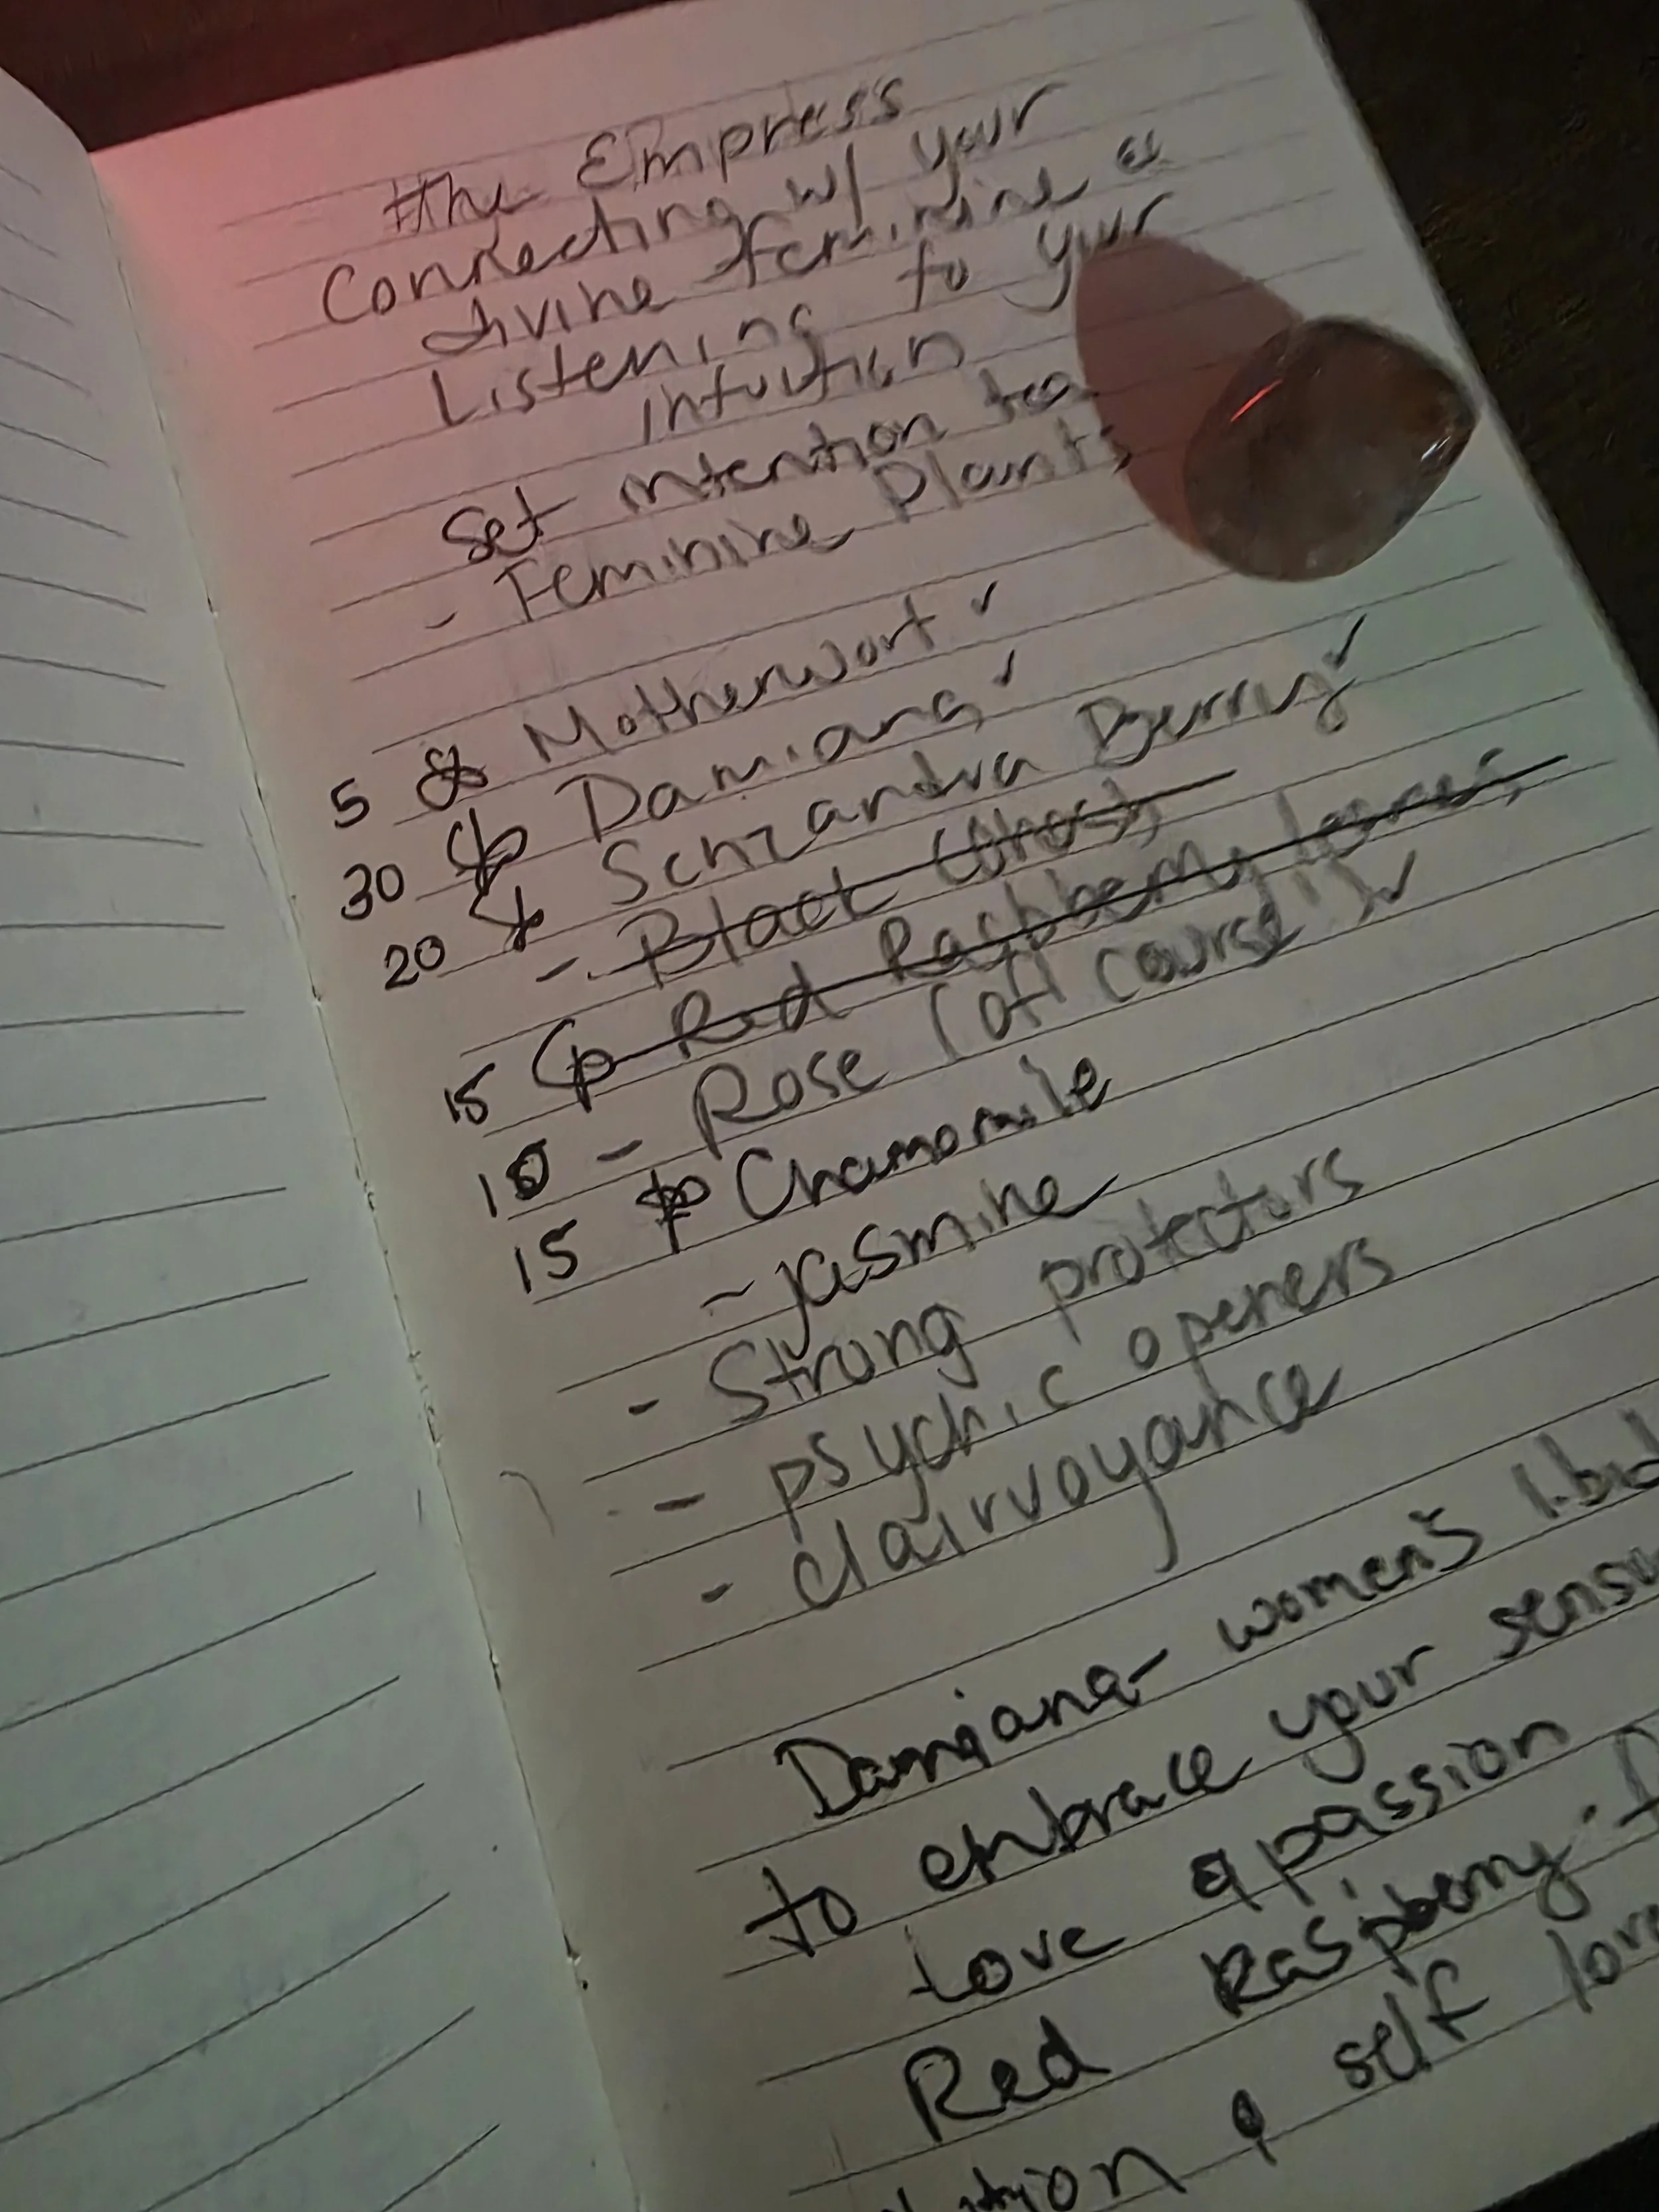 the Empress
Connecting w/ your
divine feminine &
Listening to your
intuition
Set intention tea
- Feminine Plants
5 Motherwort ✓
30 Damiana ✓
20 Schzandra Berry ✓
- Black Cohosh
15 Red Raspberry leaves
10 - Rose (off course!) ✓
15 Chamomile
- jasmine
- Strong protectors
- psychic openers
- clairvoyance
Damiana - women's libid
to embrace your sensu
love & passion
Red Raspberry
& self love